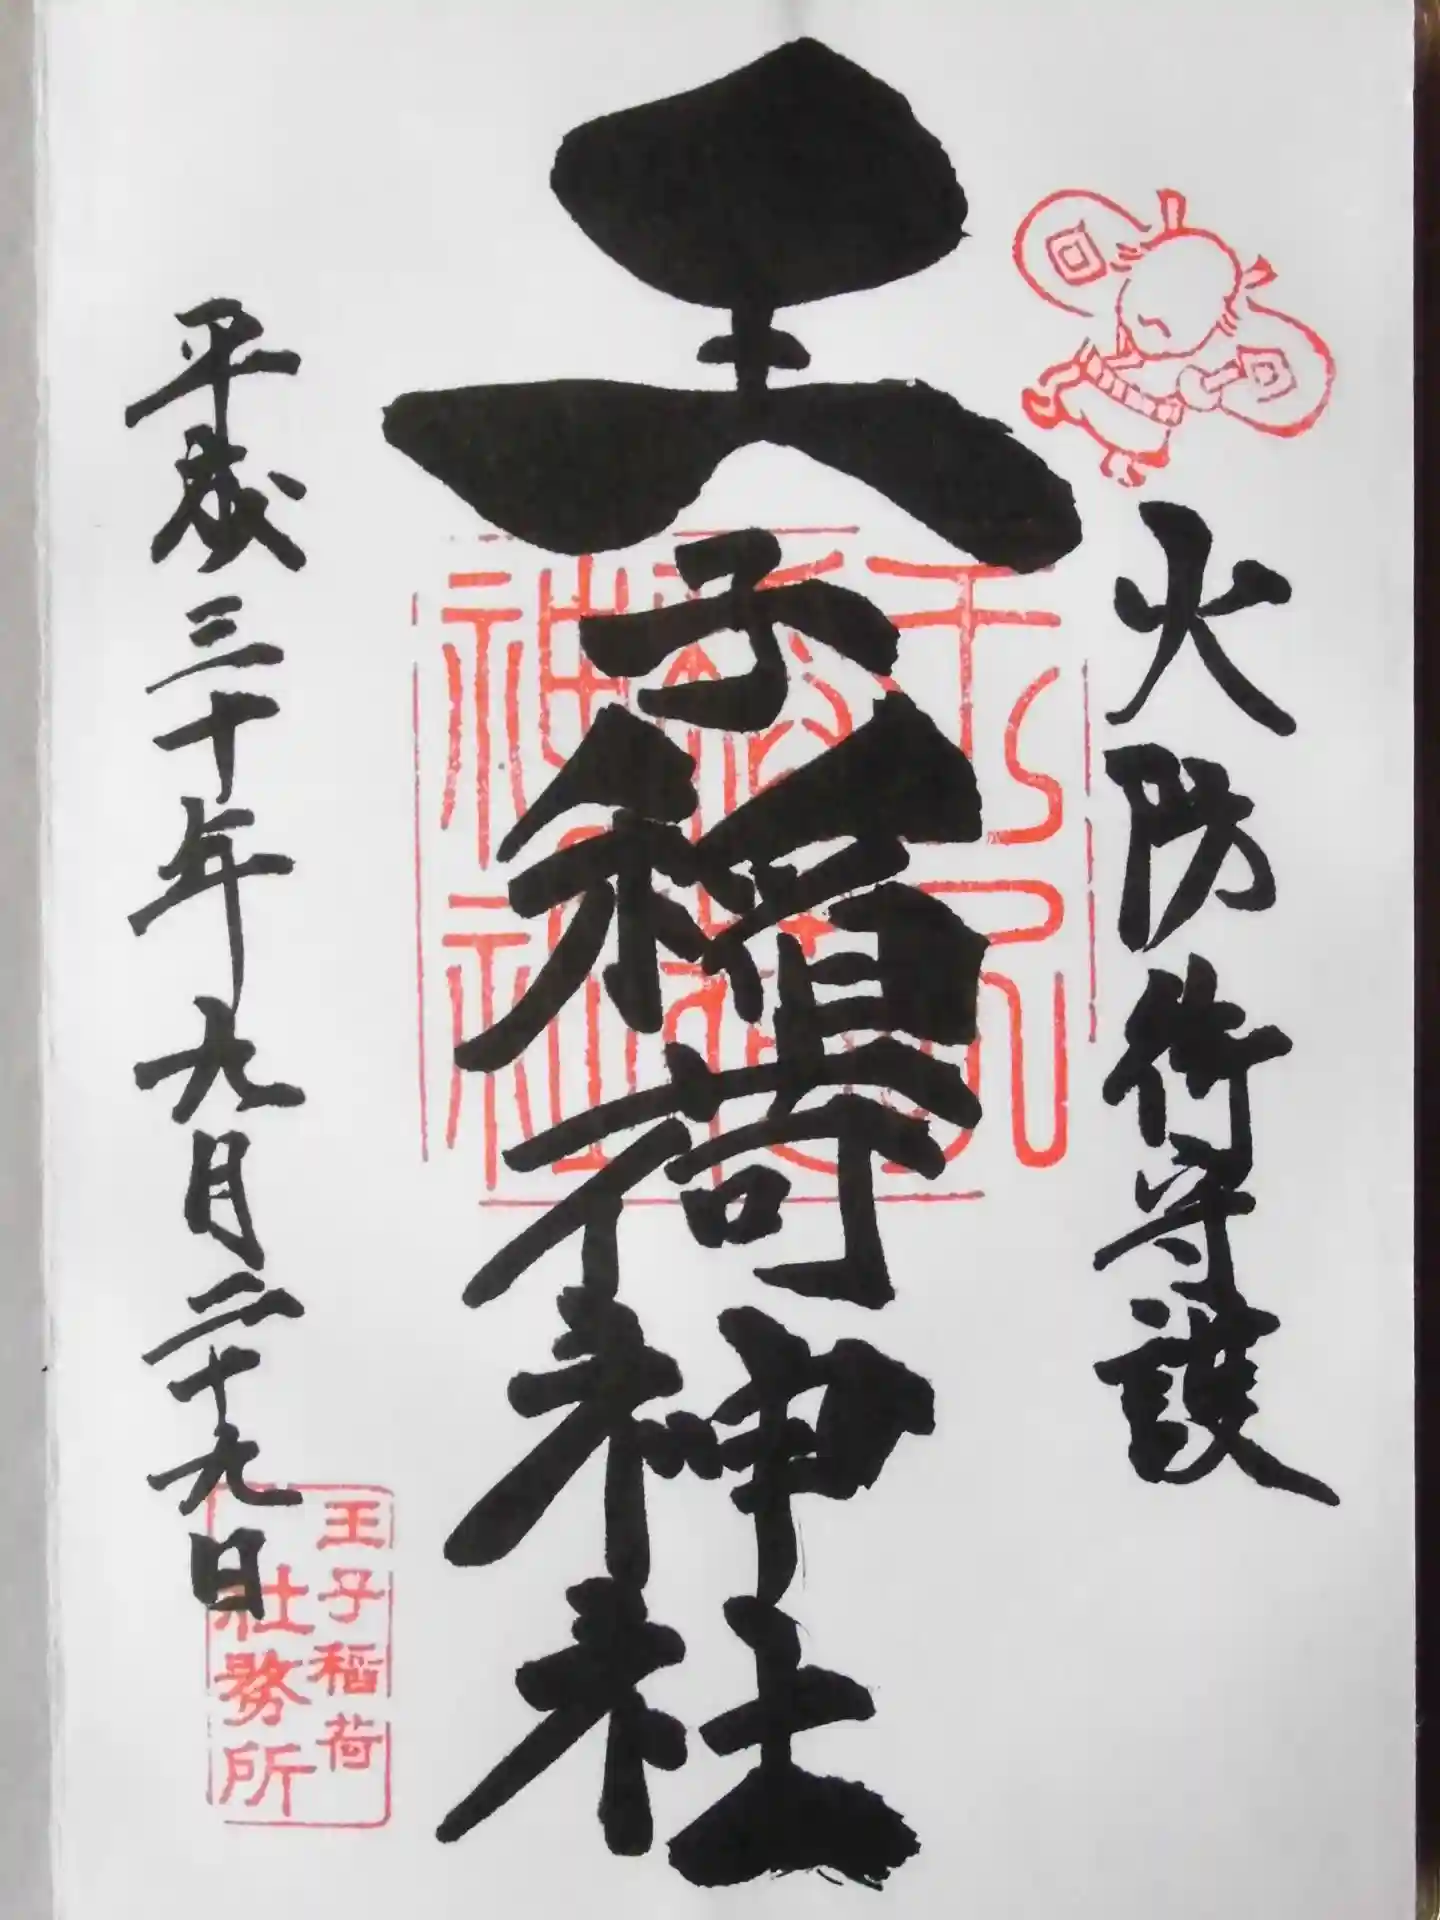 火防御守護
王子稲荷神社
平成三十年九月二十九日
王子稲荷
社務所